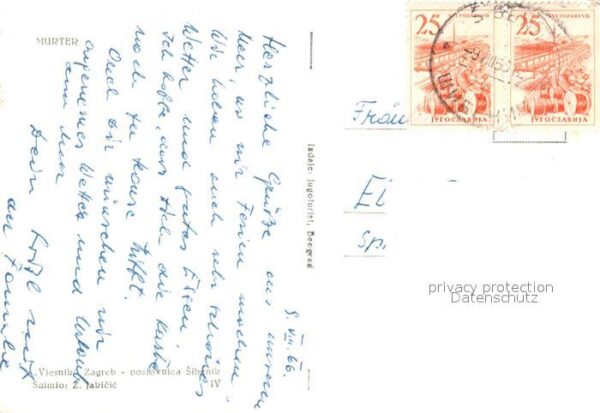 MURTER
8. VIII. 66.
Herzliche Grüße aus unserem
Meer, wo wir Ferien machen
Wir haben auch sehr schönes
Wetter und gutes Essen!
Ich hoffe, dass Dich die Karte
noch zu Hause trifft.
Auch Dir wünschen wir
angenehmes Wetter und Urlaub
am Meer
Dein
an Familie
„Vjesnik“ Zagreb - poslovnica Šibenik
Snimio: Z. Jakičić IV
Izdaje: Jugoturist, Beograd
25 SVETOZAREVO
JУГОСЛАВИЈА
25 SVETOZAREVO
JUGOSLAVIJA
Fräu
El
Sp.
privacy protection
Datenschutz